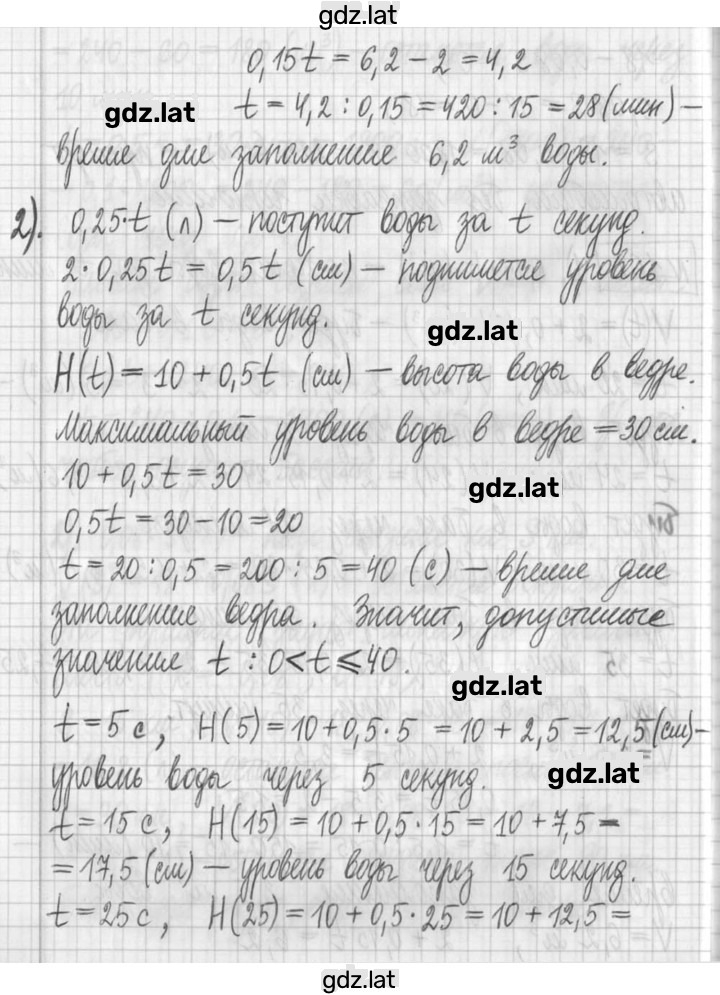 gdz.lat
0,15t = 6,2 - 2 = 4,2
gdz.lat t = 4,2 : 0,15 = 420 : 15 = 28 (мин) –
время для заполнения 6,2 м³ воды.
2). 0,25·t (л) – поступит воды за t секунд.
2·0,25t = 0,5t (см) – поднимется уровень
воды за t секунд.
gdz.lat
H(t) = 10 + 0,5t (см) – высота воды в ведре.
Максимальный уровень воды в ведре = 30 см.
10 + 0,5t = 30
gdz.lat
0,5t = 30 - 10 = 20
t = 20 : 0,5 = 200 : 5 = 40 (с) – время для
заполнения ведра. Значит, допустимые
значения t : 0 < t ⩽ 40.
gdz.lat
t = 5 с, H(5) = 10 + 0,5·5 = 10 + 2,5 = 12,5 (см) –
уровень воды через 5 секунд.
gdz.lat
t = 15 с, H(15) = 10 + 0,5·15 = 10 + 7,5 =
= 17,5 (см) – уровень воды через 15 секунд.
t = 25 с, H(25) = 10 + 0,5·25 = 10 + 12,5 =
gdz.lat